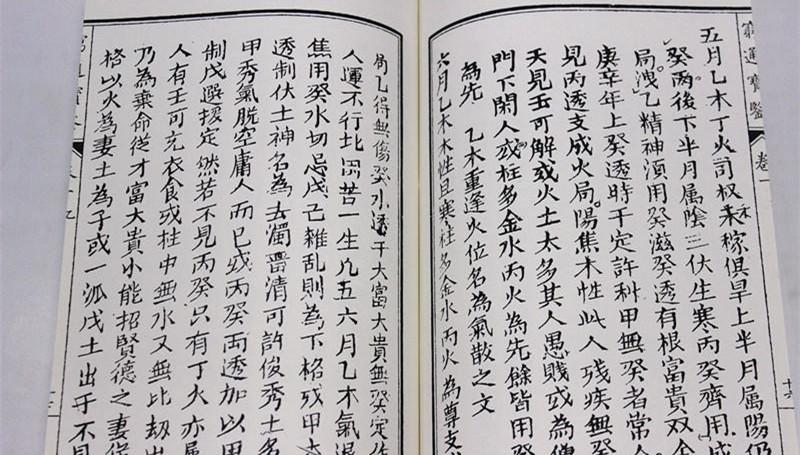 窮通寶鑒 卷一
五月乙木丁火司权禾稼俱旱上半月属陽仍
癸丙後下半月属陰三伏生寒丙癸齊用成
局洩乙精神須用癸滋癸透有根富貴双全
庚辛年上癸透時干定許科甲無癸者常人
見丙透支成火局陽焦木性此人残疾無癸
夭見壬可解或火土太多其人愚賎或為僧
門下閑人或柱多金水丙火為先餘皆用癸
為先 乙木重逢火位名為氣散之文
六月乙木木性且寒柱多金水丙火為尊支
局乙得無傷癸水透干大富大貴無癸定作
人運不行北困苦一生凢五六月乙木氣退
焦用癸水切忌戊己雜乱則為下格或甲木
透制伏土神名為去濁畱清可許俊秀土多
甲秀氣脫空庸人而已或丙癸両透加以甲
制戊選援定然若不見丙癸只有丁火亦属
人有壬可充衣食或柱中無水又無比刼出
乃為棄命從才富大貴小能招賢德之妻
格以火為妻土為子或一派戊土出干不見